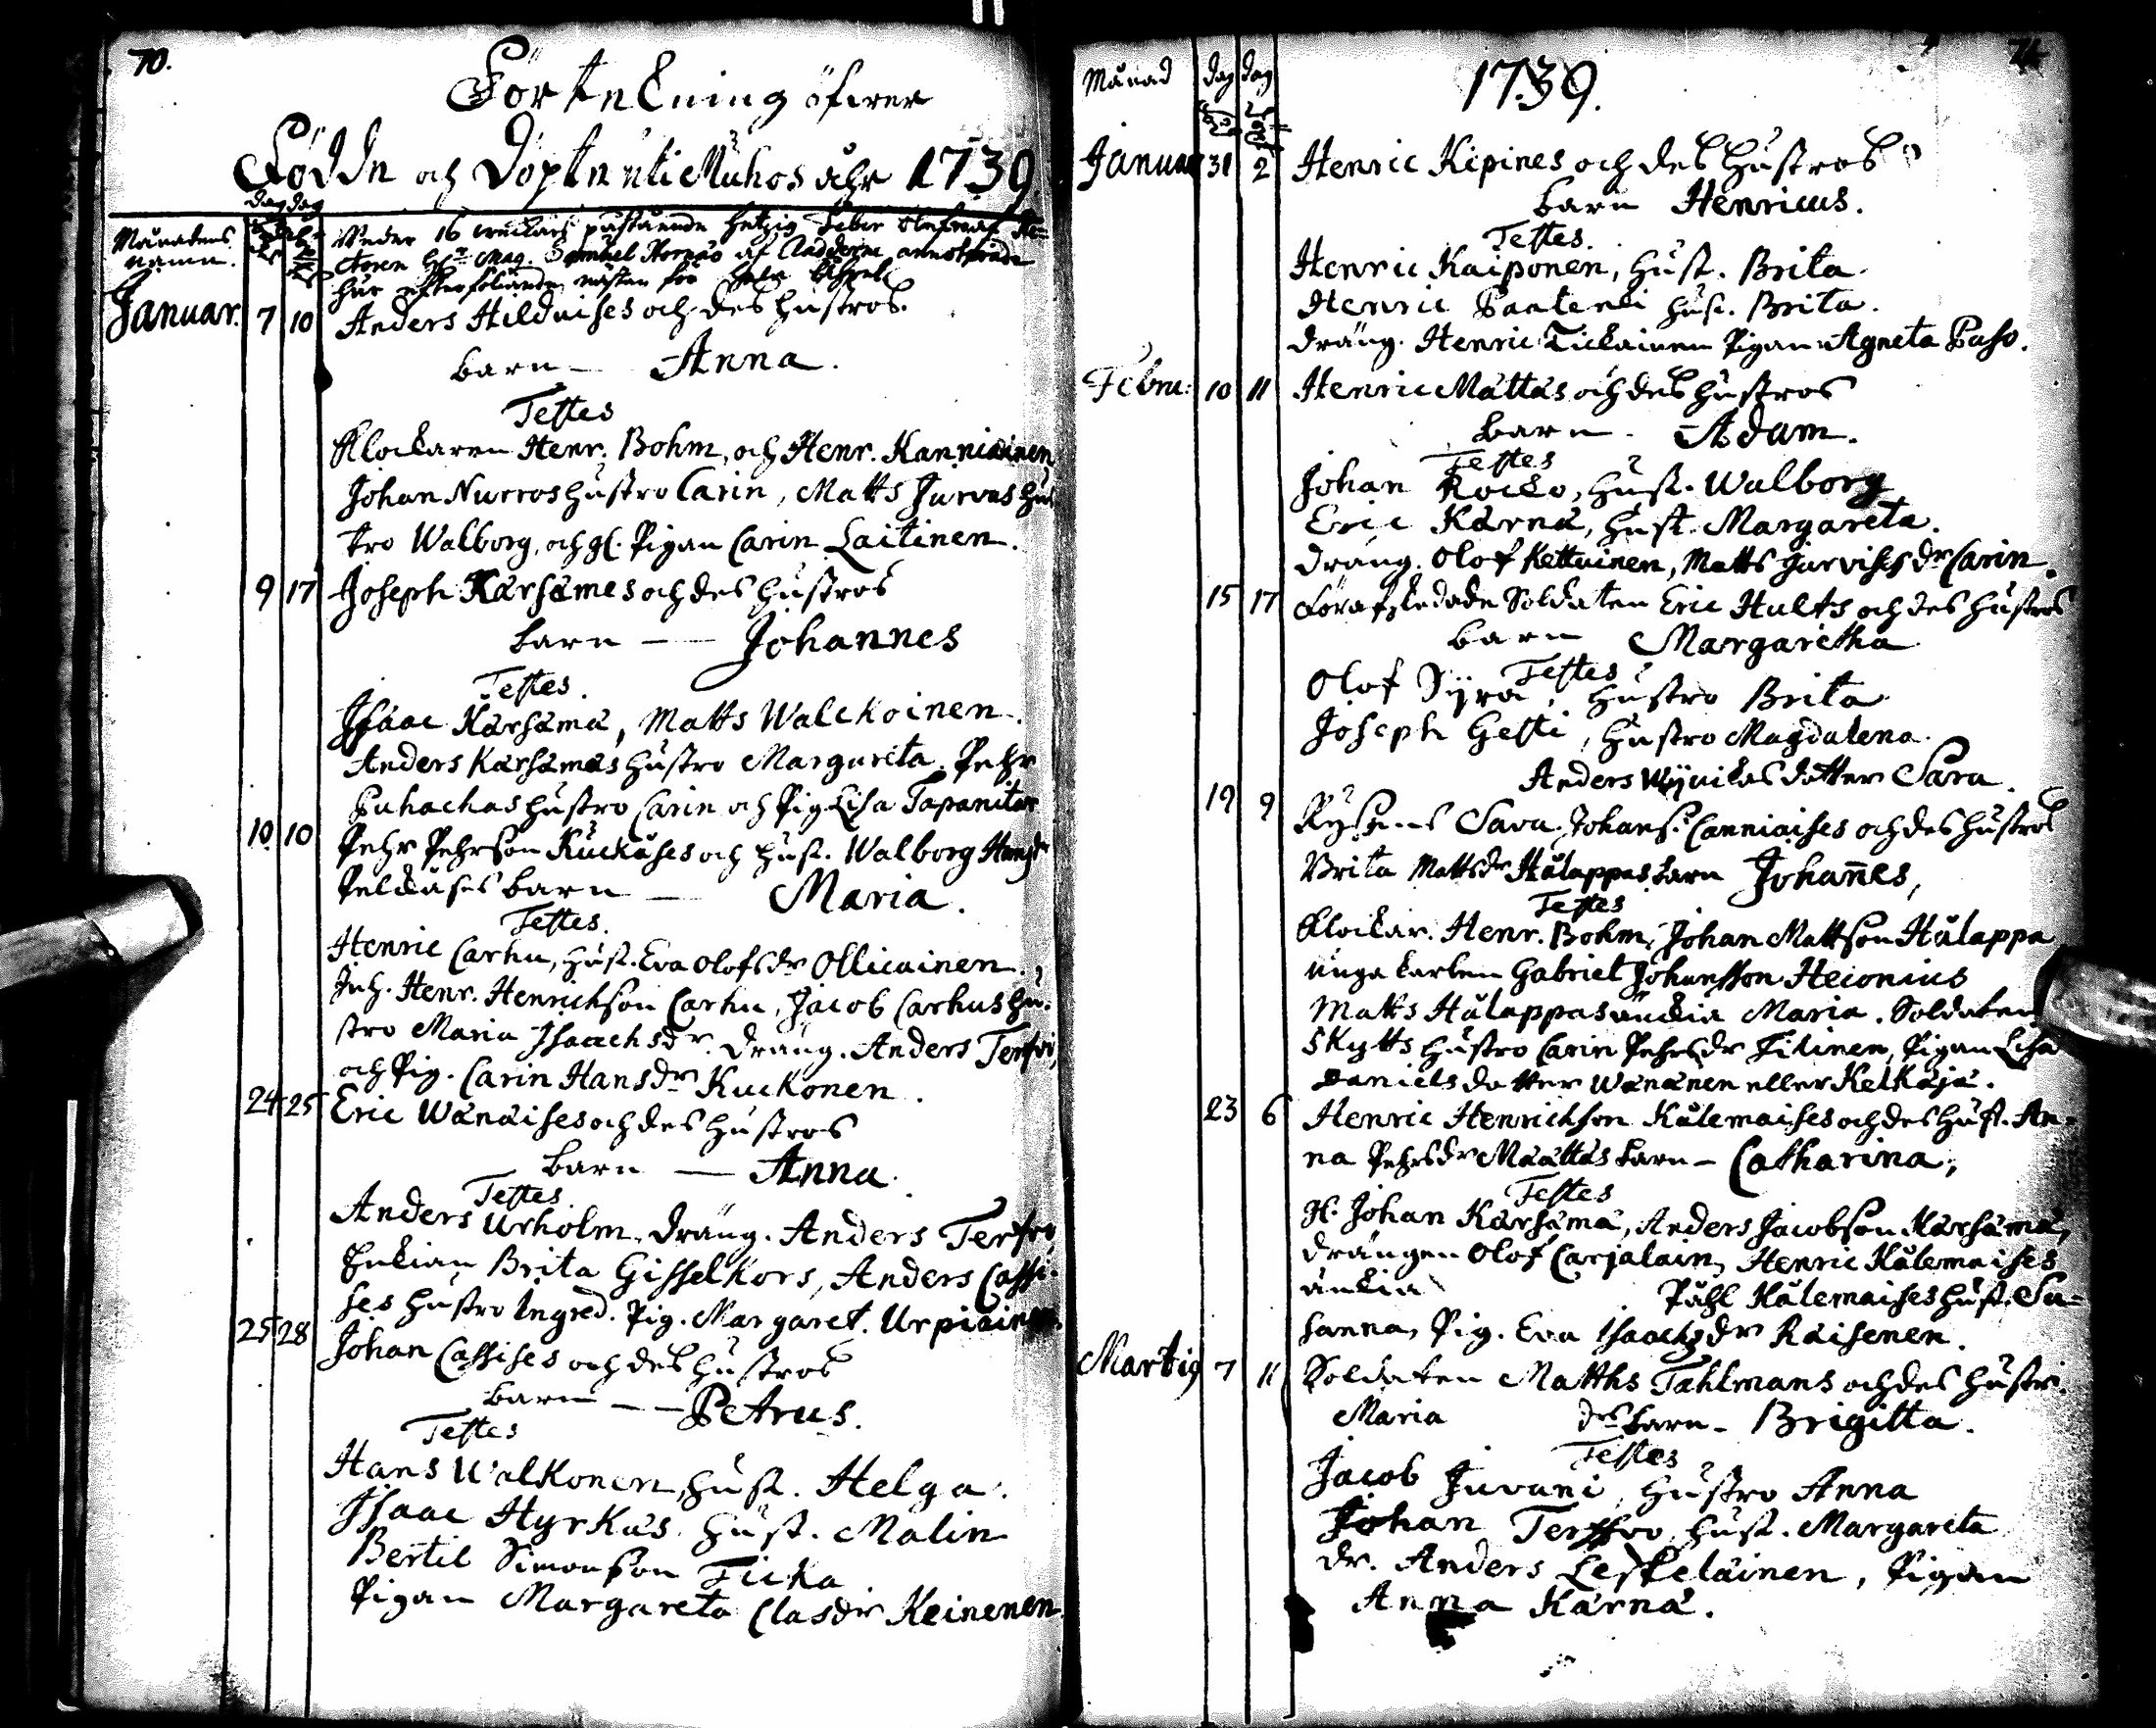 70.
Förtekning öfwer
Födde och Döpte uti Muhos åhr 1739.
dag dag
Månadens
namn.
Under 16 weckars påstående hetzig feber
Mag. Samuel
här efterföliande nästan för hela
Januar. 7 10 Anders Hilduises och des hustros
barn — Anna.
Testes
Klockaren Henr. Bohm, och Henr. Kanniainen
Johan Nurros hustro Carin, Matts Jurvas hus
tro Walborg, och gl. Pigan Carin Laitinen.
9 17 Joseph Kärsämes och des hustros
barn — Johannes
Testes.
Isaac Kärsämä, Matts Walckoinen.
Anders Kärsämäs hustro Margareta. Pehr
Puhackas hustro Carin och Pig. Lisa Tapanitar
10 10 Pehr Pehrson Kuckåses och hust. Walborg Hansdr
Pelckåses barn — Maria.
Testes.
Henric Carhu, hust. Eva Olofsdr Ollicainen.,
Inh. Henr. Henrichson Carhu, Jacob Carhus hu-
stro Maria Isaachsdr. dräng. Anders Terfvo,
och Pig. Carin Hansdr Kuckonen.
24 25 Eric Wänäises och des hustros
barn — Anna.
Testes
Anders Urholm, dräng. Anders Terfvo
Enkian Brita Gisselkors, Anders Cassi-
ses hustro Ingred. Pig. Margaret. Urpiainen.
25 28 Johan Cassises och des hustros
barn — Petrus.
Testes
Hans Walkonen, hust. Helga.
Isaac Hyrkäs hust. Malin
Bertil Simonson Ticka
Pigan Margareta Clasdr Keinenen
71
Månad dag dag
1739.
Januar 31 2 Henric Kipines och des hustros
barn Henricus.
Testes.
Henric Kaiponen, hust. Brita.
Henric Pantenli hust. Brita.
dräng. Henric Tickainen Pigan Agneta Paso.
Febru: 10 11 Henric Mättäs och des hustros
barn. Adam.
Testes
Johan Kocko, hust. Walborg
Eric Kärnä, hust. Margareta.
dräng. Olof Kettuinen, Matts Jarvises dr Carin.
15 17 Förafskedade Soldaten Eric Hults och des hustros
barn Margaretha
Testes
Olof Syrä, hustro Brita
Joseph Gesti, hustro Magdalena.
Anders Wynickas dotter Sara.
19 9 Johans. Canniaises och des hustros
Brita Mattsdr Hålappas barn Johannes,
Testes
Klockar. Henr. Bohm, Johan Mattson Hålappa
unga karlen Gabriel Johansson Heconius
Matts Hålappas änckia Maria. Soldaten
Skytts hustro Carin Pehrsdr Tikinen, Pigan Lisa
Daniels dotter Wänänen eller Kelkäjä.
23 6 Henric Henrichson Kålemaises och des hust. An-
na Pehrsdr Määttäs barn — Catharina;
Testes
Gl. Johan Kärsämä, Anders Jacobson Kärsämä,
drängen Olof Carjalain, Henric Kålemaises
änckia Påhl Kålemaises hust. Su-
sanna, Pig. Eva Isaachsdr Räisenen.
Martig 7 11 Soldaten Matths Tahlmans och des hustr.
Maria dr barn — Brigitta.
Testes
Jacob Juvani, hustro Anna
Johan Terffvo, hust. Margareta
dr. Anders Leskeläinen, Pigan
Anna Kärnä.